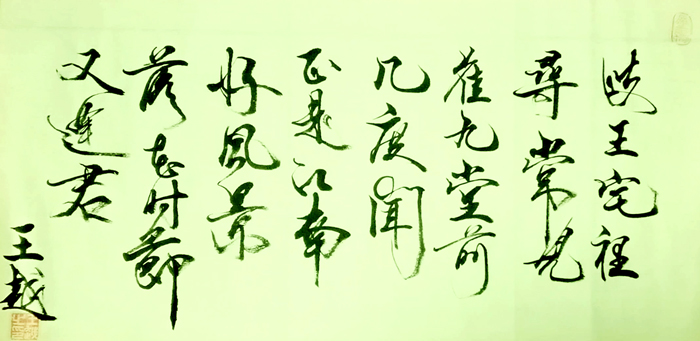 岐王宅裡
尋常見
崔九堂前
几度聞
正是江南
好風景
落花时節
又逢君
王越